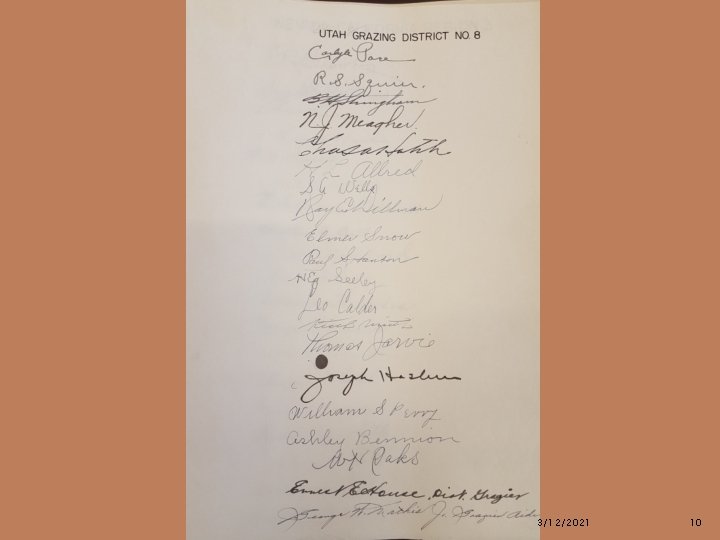 UTAH GRAZING DISTRICT NO. 8
Carlyle Pace
R. S. Squier.
N. J. Meagher.
Allred
S A Wells
Ray E Dillman
Elmer Snow
Paul S. Hanson
H E Seeley
Leo Calder
Thomas Jarvie
Joseph Haslem
William S Perry
Ashley Bennion
W H Oaks
Ernest E House, Dist. Grazier
George W. Mathis Jr.
3/12/2021
10